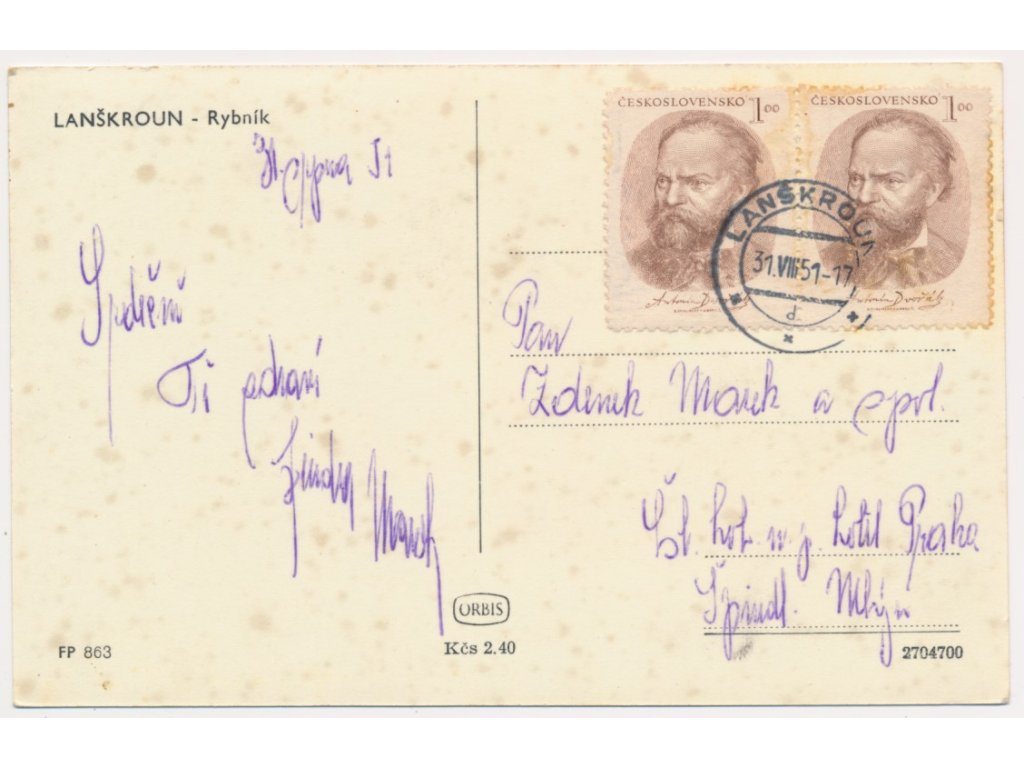 LANŠKROUN - Rybník
31. srpna 51
Srdeční
Tě zdraví
Jindra Marek
FP 863
ORBIS
Kčs 2.40
ČESKOSLOVENSKO 1 00
Antonín Dvořák
ČESKOSLOVENSKO 1 00
Antonín Dvořák
LANŠKROUN
31.VIII 51-17
d
Pan
Zdenek Marek a spol.
Čs. hot. n. p. hotel Praha
Špindl. Mlýn
2704700